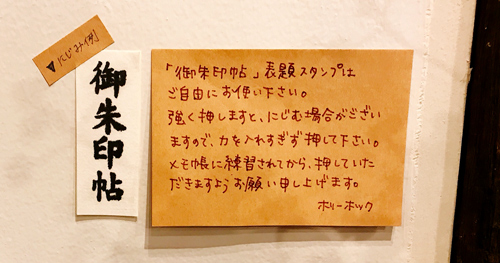 ▼にじみ例
御朱印帖
「御朱印帖」表題スタンプは
ご自由にお使い下さい。
強く押しますと、にじむ場合がござい
ますので、力を入れすぎず押して下さい。
メモ帳に練習されてから、押していた
だきますようお願い申し上げます。
ホリーホック